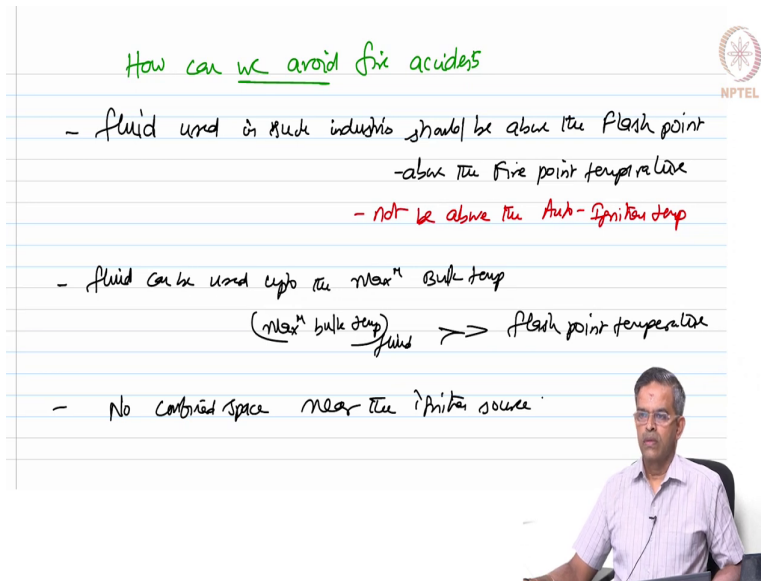 How can we avoid fire accidents
NPTEL
- fluid used in such industries should be above the Flash point
- above the Fire point temperature
- not be above the Auto-Ignition temp
- fluid can be used upto the Maxᵐ Bulk temp
(Maxᵐ bulk temp)fluid >> flash point temperature
- No confined space near the ignition source.